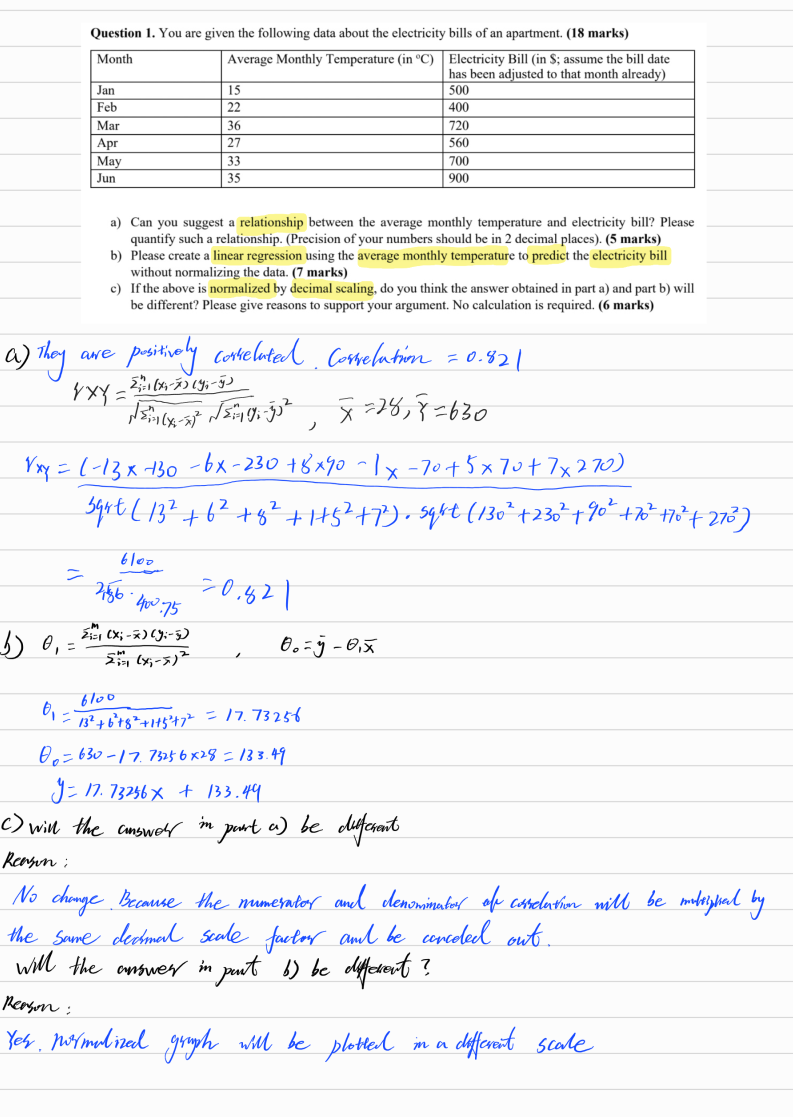 Question 1. You are given the following data about the electricity bills of an apartment. (18 marks)
Month Average Monthly Temperature (in °C) Electricity Bill (in $; assume the bill date
has been adjusted to that month already)
Jan 15 500
Feb 22 400
Mar 36 720
Apr 27 560
May 33 700
Jun 35 900
a) Can you suggest a relationship between the average monthly temperature and electricity bill? Please
quantify such a relationship. (Precision of your numbers should be in 2 decimal places). (5 marks)
b) Please create a linear regression using the average monthly temperature to predict the electricity bill
without normalizing the data. (7 marks)
c) If the above is normalized by decimal scaling, do you think the answer obtained in part a) and part b) will
be different? Please give reasons to support your argument. No calculation is required. (6 marks)
a) They are positively correlated. Correlation = 0.821
rxy = Σⁿᵢ₌₁(xᵢ-x̄)(yᵢ-ȳ) / √Σⁿᵢ₌₁(xᵢ-x̄)² √Σⁿᵢ₌₁(yᵢ-ȳ)² , x̄ = 28, ȳ = 630
rxy = (-13 x -130 - 6 x -230 + 8 x 90 - 1 x -70 + 5 x 70 + 7 x 270)
sqrt (13² + 6² + 8² + 1 + 5² + 7²) · sqrt (130² + 230² + 90² + 70² + 70² + 270²)
= 6100 / · 400.75 = 0.821
b) θ₁ = Σᵐᵢ₌₁(xᵢ-x̄)(yᵢ-ȳ) / Σᵐᵢ₌₁(xᵢ-x̄)² , θ₀ = ȳ - θ₁x̄
θ₁ = 6100 / 13²+6²+8²+1+5²+7² = 17.73256
θ₀ = 630 - 17.73256 x 28 = 133.49
y = 17.73256x + 133.49
c) Will the answer in part a) be different
Reason :
No change. Because the numerator and denominator of correlation will be multiplied by
the same decimal scale factor and be canceled out.
Will the answer in part b) be different ?
Reason :
Yes. Normalized graph will be plotted in a different scale